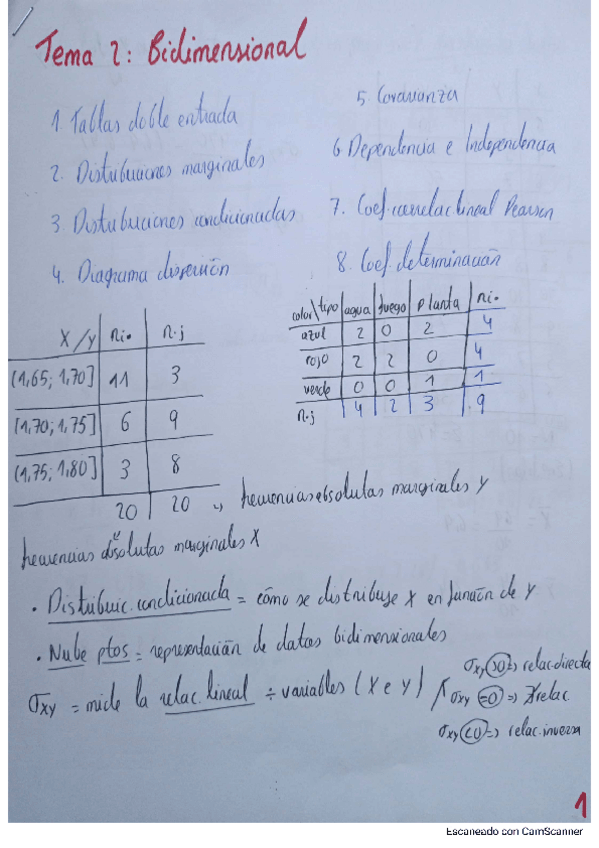 Tema 2: Bidimensional
1. Tablas doble entrada
2. Distribuciones marginales
3 Distribuciones condicionadas
4. Diagrama dispersión
5. Covarianza
6 Dependencia e Independencia
7. Coef. correlac lineal Pearson
8. Coef. determinación
X / Y ni. n.j
(1,65; 1,70] 11 3
(1,70; 1,75] 6 9
(1,75; 1,80] 3 8
20 20 → frecuencias absolutas marginales y
frecuencias absolutas marginales X
color\tipo agua fuego planta ni.
azul 2 0 2 4
rojo 2 2 0 4
verde 0 0 1 1
n.j 4 2 3 9
• Distribuc. condicionada = cómo se distribuye X en función de Y
• Nube ptos = representación de datos bidimensionales
σxy = mide la relac. lineal ÷ variables (X e Y)
σxy >0 => relac. directa
σxy =0 => ∄ relac.
σxy <0 => relac. inversa
1
Escaneado con CamScanner